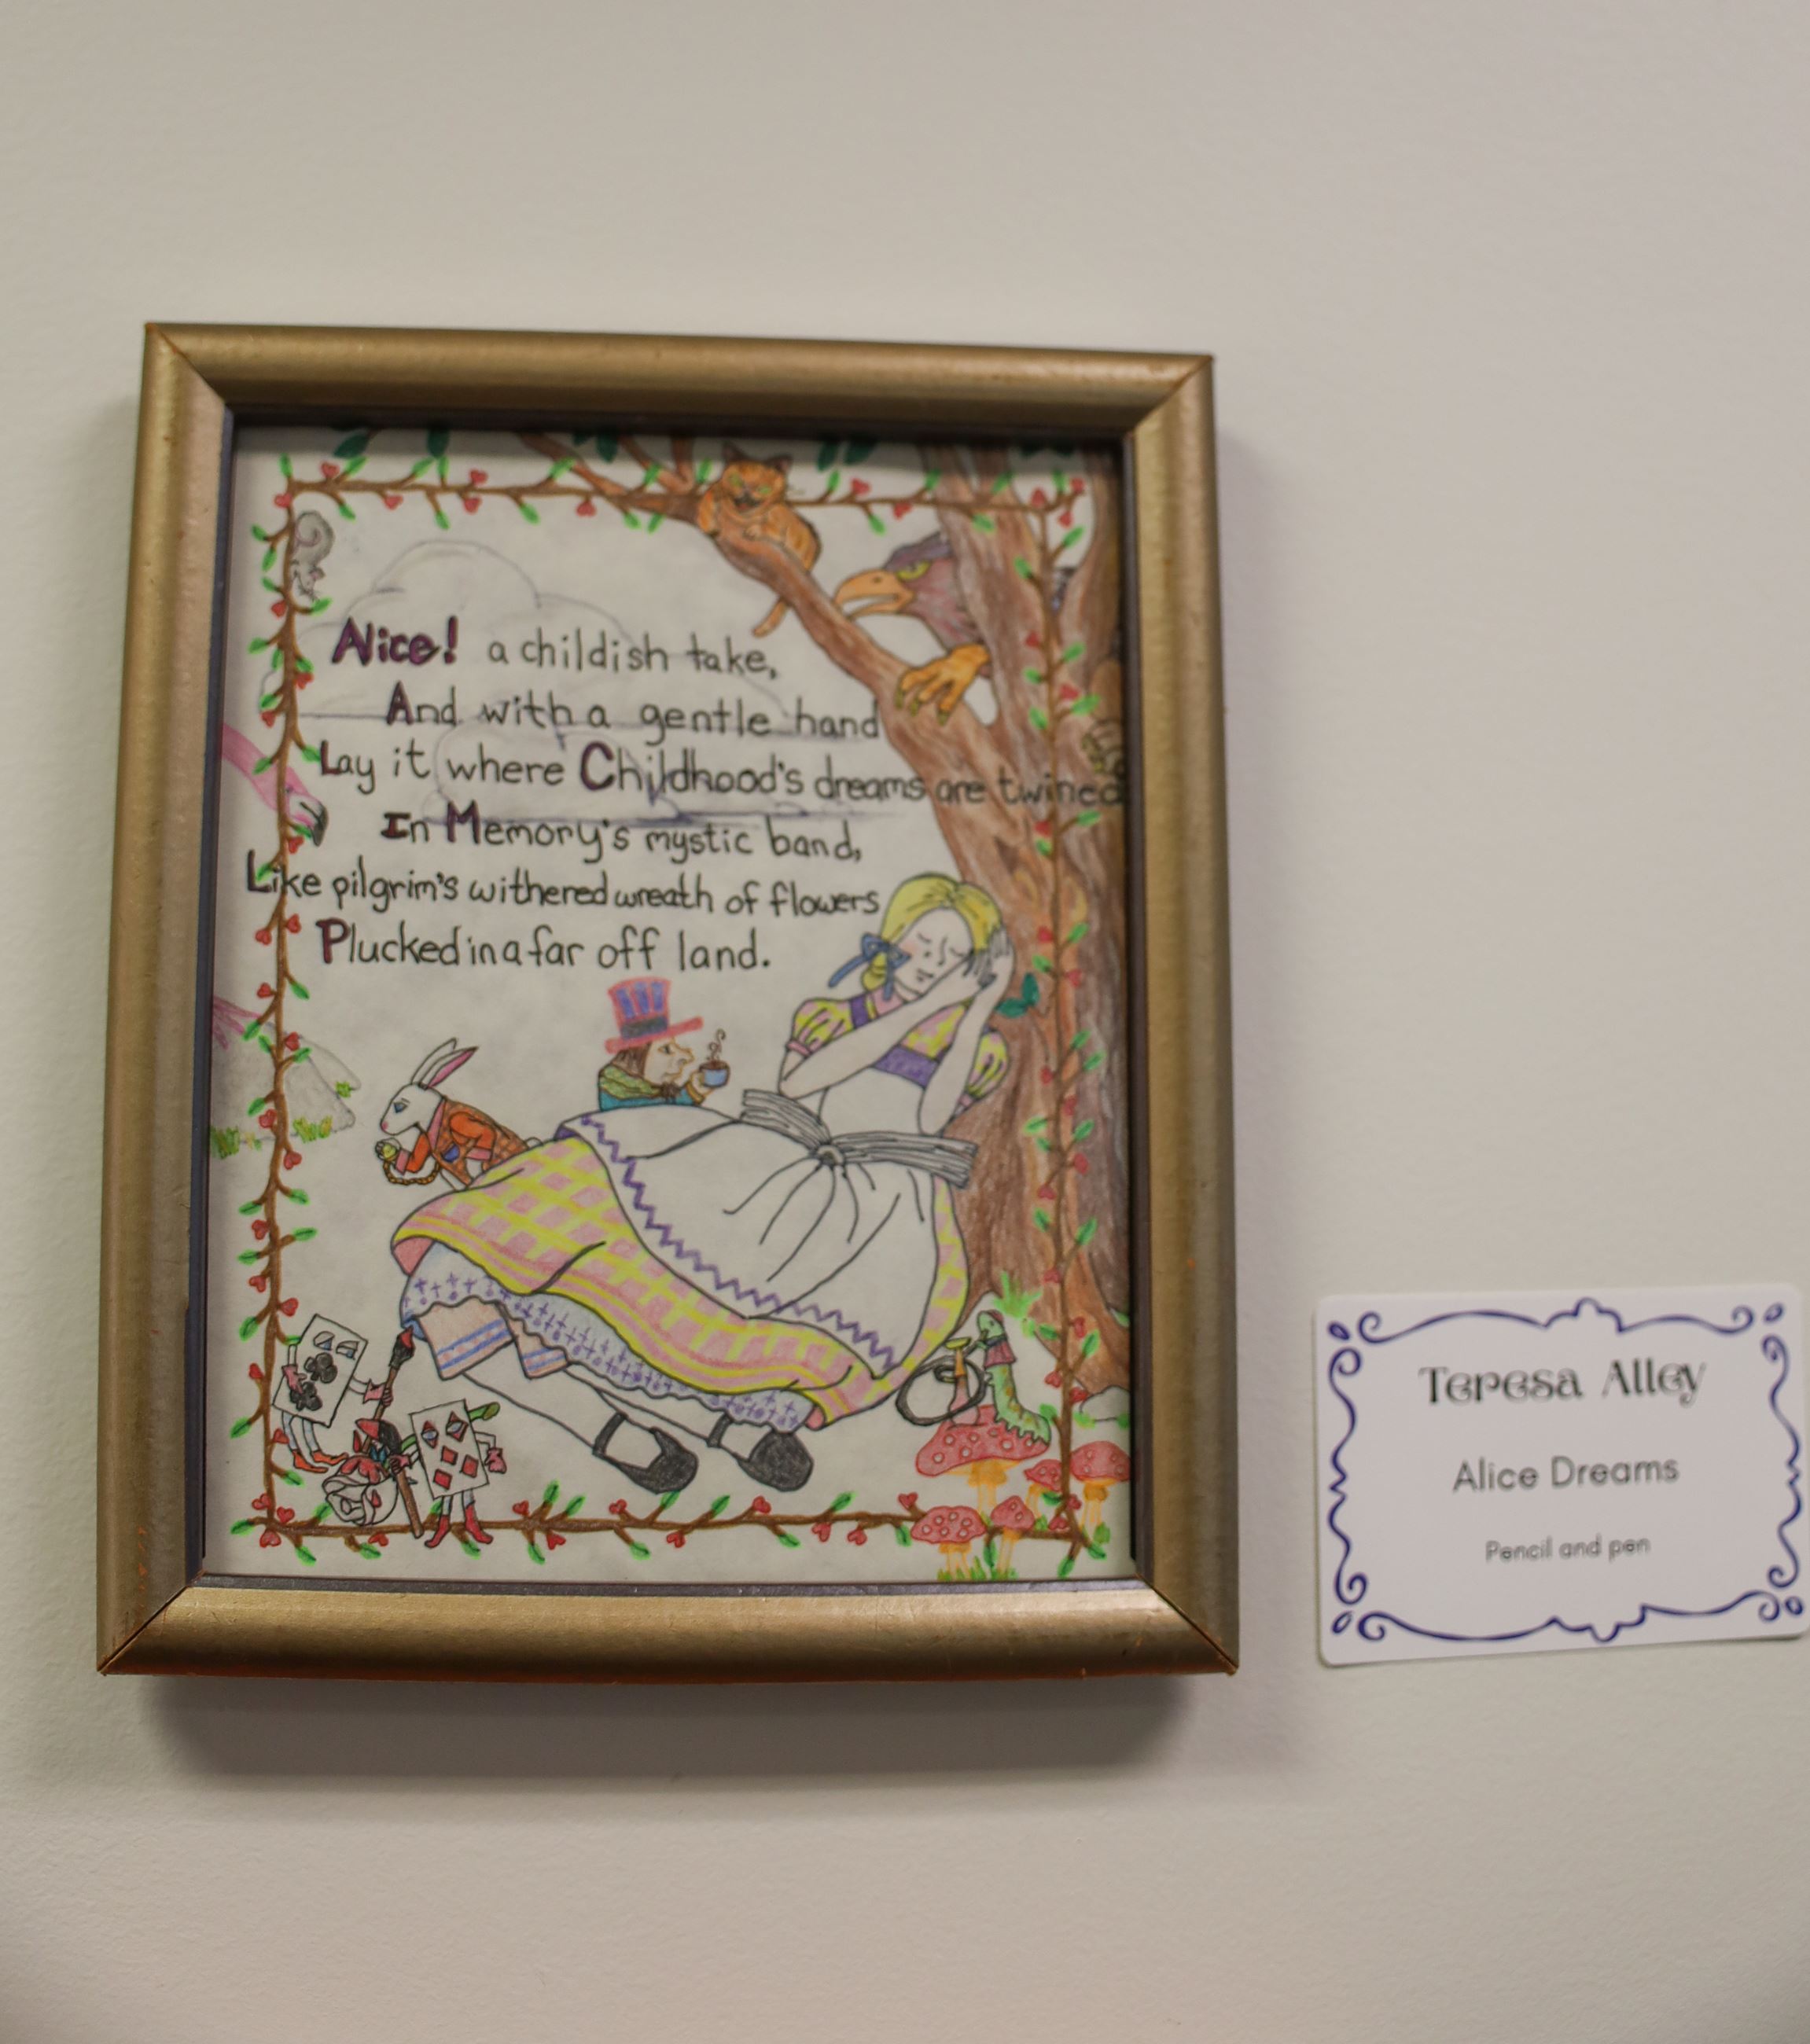 Alice! a childish take,
And with a gentle hand
Lay it where Childhood's dreams are twined
In Memory's mystic band,
Like pilgrim's withered wreath of flowers
Plucked in a far off land.
Teresa Alley
Alice Dreams
Pencil and pen